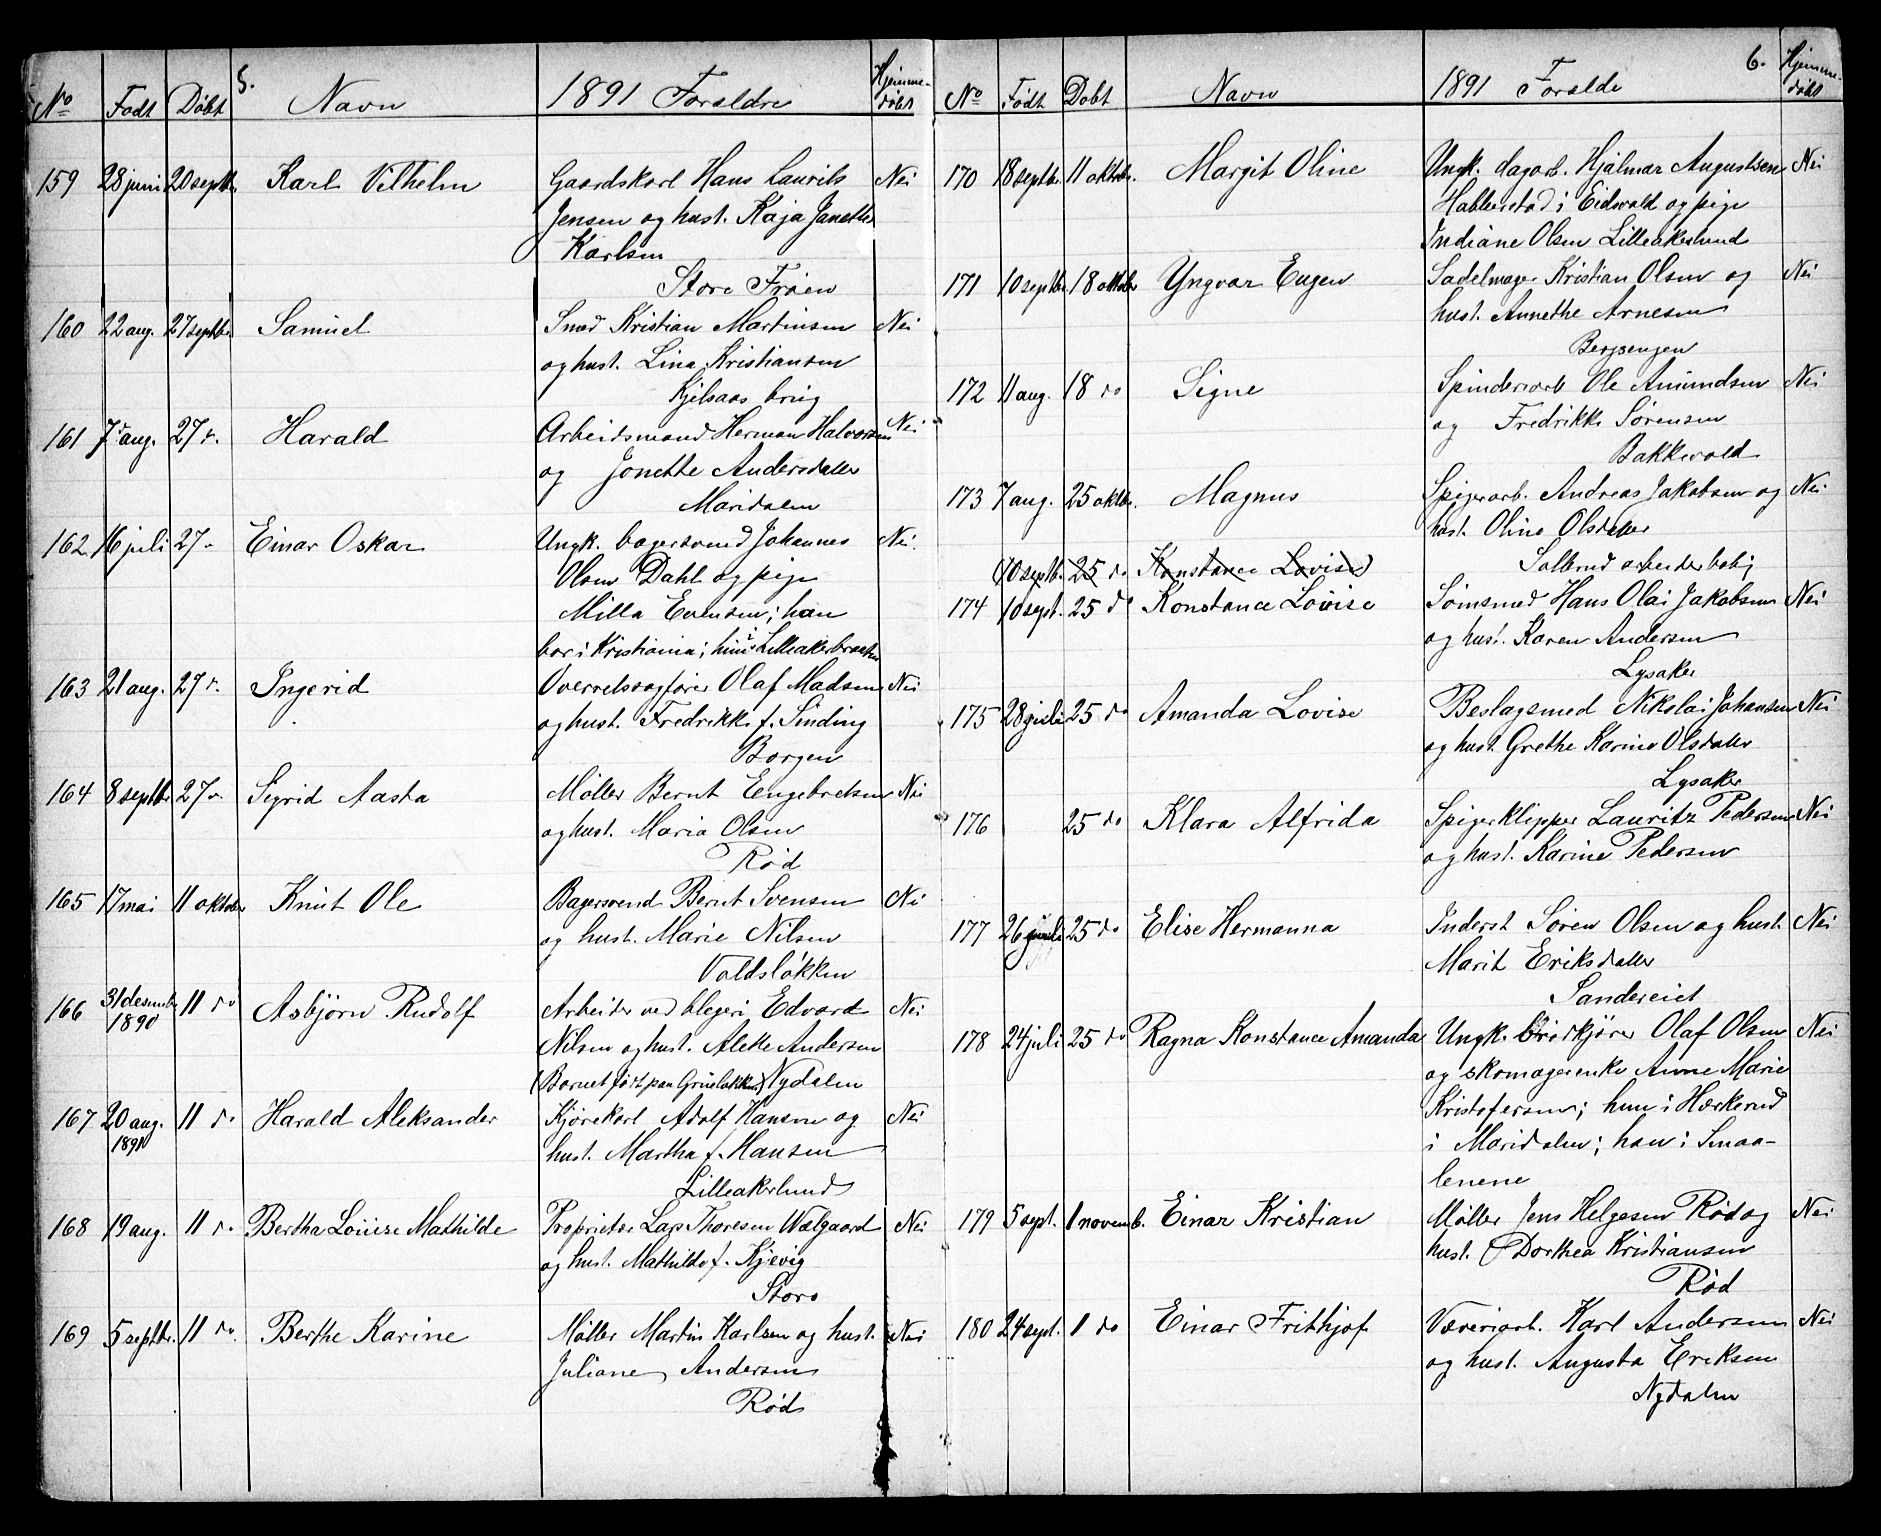 5.
No Født Døbt Navn 1891 Forældre Hjemme-
døbt
159 28 juni 20 septbr. Karl Vilhelm Gaardskarl Hans Laurits Nei
Jensen og hust. Kaja Janette
Karlsen
Store Frøen
160 22 aug. 27 septbr. Samuel Smed Kristian Martinsen Nei
og hust. Lina Kristiansen
Kjelsaas brug
161 7 aug. 27 d. Harald Arbeidsmand Herman Halvorsen Nei
og Jonette Andersdatter
Maridalen
162 16 juli 27 Einar Oskar Ungk. bagersvend Johannes Nei
Olsen Dahl og pige
Milla Evensen; han
bor i Kristiania; hun i Lilleakerbraaten
163 21 aug. 27 d. Ingerid Overretssagfører Olaf Madsen Nei
og hust. Fredrikke f. Sinding
Borgen
164 8 septbr. 27 Sigrid Aasta Møller Bernt Engebretsen Nei
og hust. Maria Olsen
Rød
165 17 mai 11 oktober Knut Ole Bagersvend Bernt Svensen Nei
og hust. Marie Nilsen
Valdsløkken
166 31 desember 11 do Asbjørn Rudolf Arbeider ved blegeri Edvard Nei
1890
Nilsen og hust. Alette Andersen
(Barnet født paa Grünløkken) Nydalen
167 20 aug. 11 do Harald Aleksander Kjørekarl Adolf Hansen og Nei
1891
hust. Martha f. Hansen
Lilleakerlund
168 19 aug. 11 d. Bertha Louise Mathilde Proprietær Lars Thoresen Wælgaard Nei
og hust. Mathilde f. Kjevig
Storo
169 5 septbr. 11 do. Berthe Karine Møller Martin Karlsen og hust. Nei
Juliane Andersen
Rød
6.
No Født Døbt Navn 1891 Forælde Hjemme-
døbt
170 18 septbr. 11 oktobr. Margit Oline Ungk. dagarb. Hjalmar Augustsen Nei
Habberstad i Eidsvold og pige
Indiane Olsen Lilleakerlund
171 10 septbr. 18 oktober Yngvar Eugen Sadelmager Kristian Olsen og Nei
hust. Annethe Arnesen
Bergsengen
172 11 aug. 18 do Signe Spinderiarb Ole Amundsen Nei
og Fredrikke Sørensen
Bakkevold
173 7 aug. 25 oktbr. Magnus Spigerarb. Andreas Jakobsen og Nei
hust. Oline Olsdatter
Sollerud arbeiderbol;
10 septb. 25 do Konstance Lovise
174 10 sept. 25 do Konstance Lovise Sømsmed Hans Olai Jakobsen Nei
og hust. Karen Andersen
Lysaker
175 28 juli 25 do Amanda Lovise Beslagsmed Nikolai Johansen Nei
og hust. Grethe Karine Olsdatter
Lysaker
176 25 do Klara Alfrida Spigerklipper Lauritz Pedersen Nei
og hust. Karine Pedersen
177 26 juli 25 do Elise Hermanna Inderst Søren Olsen og hust. Nei
Marit Eriksdatter
Sandereiet
178 24 juli 25 do Ragna Konstance Amanda Ungk. brødkjører Olaf Olsen Nei
og skomagerenke Anne Marie
Kristofersen; hun i Hærkerud
i Maridalen; han i Smaa-
lenene
179 5 sept. 1 novemb. Einar Kristian Møller Jens Helgesen Rød og Nei
hust. Dorthea Kristiansen
Rød
180 24 sept. 1 do Einar Frithjof Væveriarb. Karl Andersen Nei
og hust. Augusta Eriksen
Nydalen